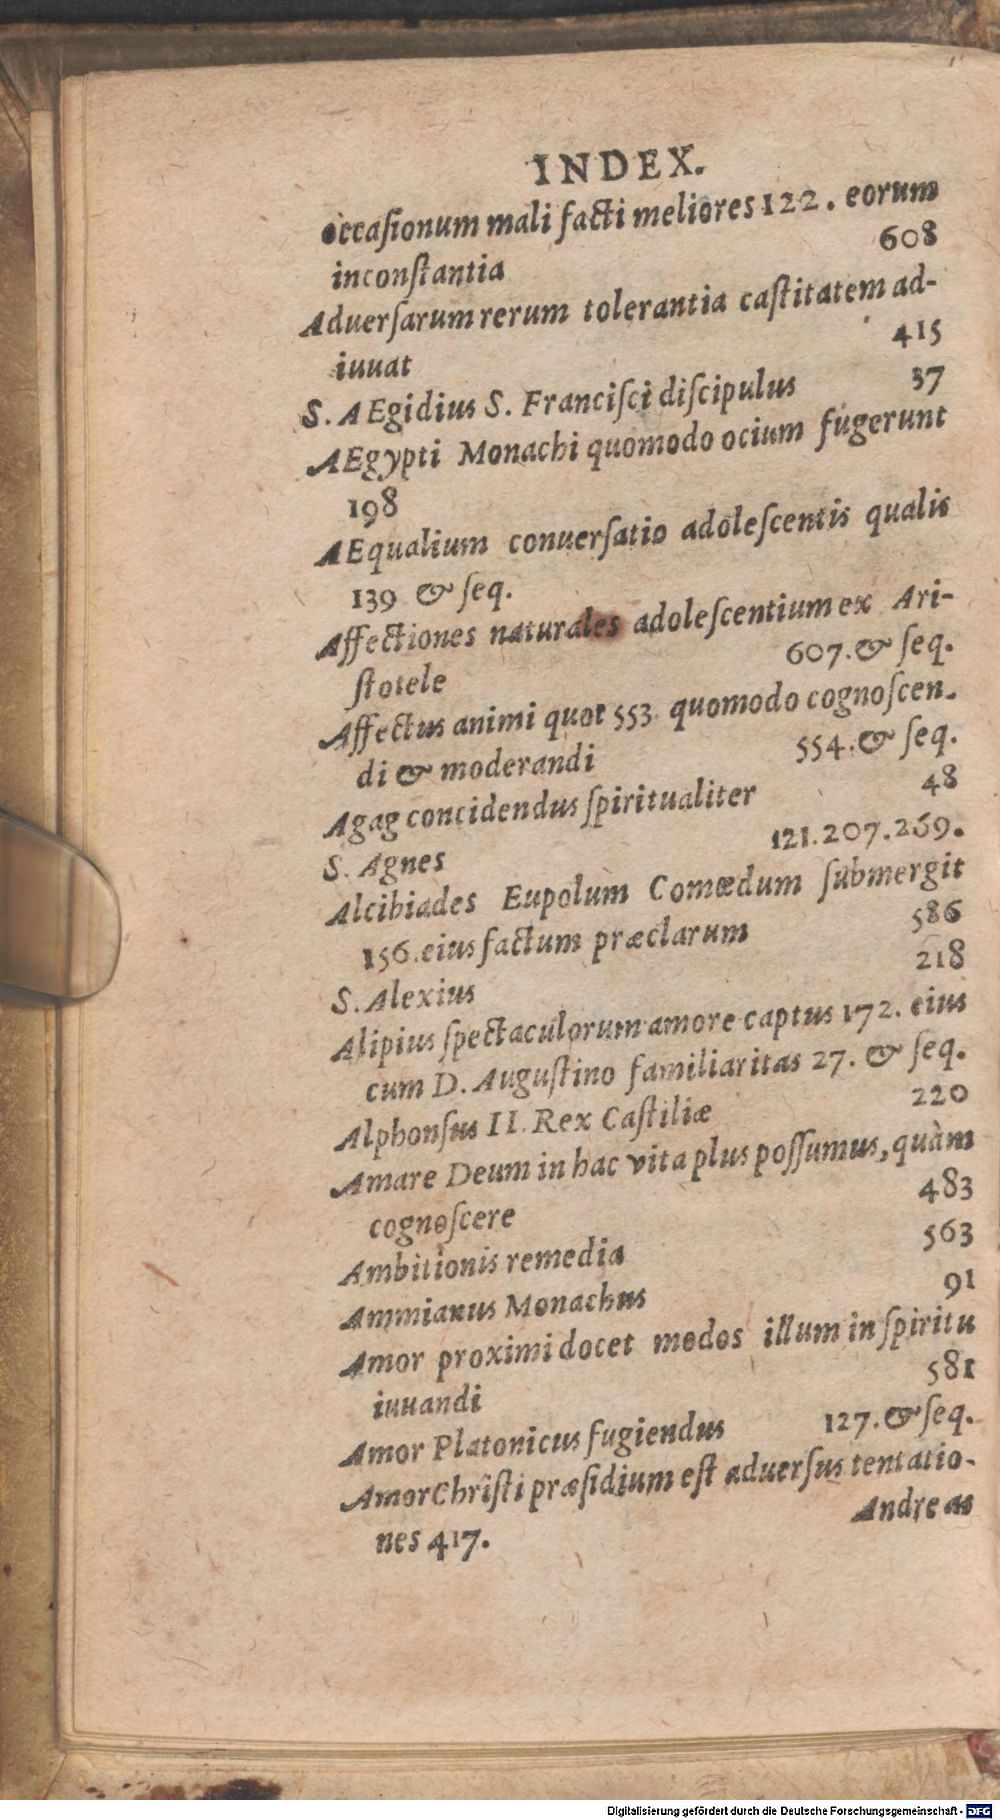 INDEX.
occasionum mali facti meliores 122. eorum
inconstantia 608
Aduersarum rerum tolerantia castitatem ad-
iuuat 415
S. AEgidius S. Francisci discipulus 37
AEgypti Monachi quomodo ocium fugerunt
198
AEqualium conuersatio adolescentis qualis
139 & seq.
Affectiones naturales adolescentium ex Ari-
stotele 607. & seq.
Affectus animi quot 553. quomodo cognoscen-
di & moderandi 554. & seq.
Agag concidendus spiritualiter 48
S. Agnes 121. 207. 269.
Alcibiades Eupolum Comœdum submergit
156. eius factum præclarum 586
S. Alexius 218
Alipius spectaculorum amore captus 172. eius
cum D. Augustino familiaritas 27. & seq.
Alphonsus II. Rex Castiliæ 220
Amare Deum in hac vita plus possumus, quàm
cognoscere 483
Ambitionis remedia 563
Ammianus Monachus 91
Amor proximi docet modos illum in spiritu
iuuandi 581
Amor Platonicus fugiendus 127. & seq.
Amor Christi præsidium est aduersus tentatio-
nes 417.
Andreas
Digitalisierung gefördert durch die Deutsche Forschungsgemeinschaft - DFG